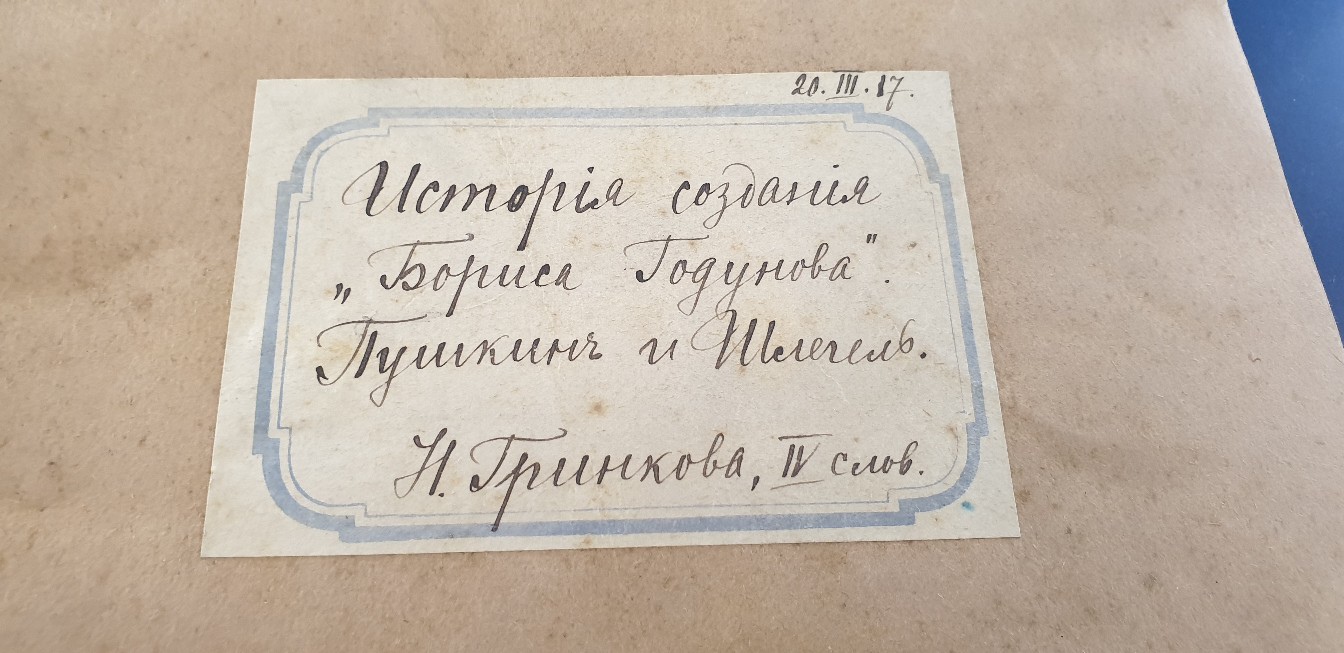 20.III.17.
Исторія созданія
„Бориса Годунова".
Пушкинъ и Шлегель.
Н. Гринкова, IV слов.